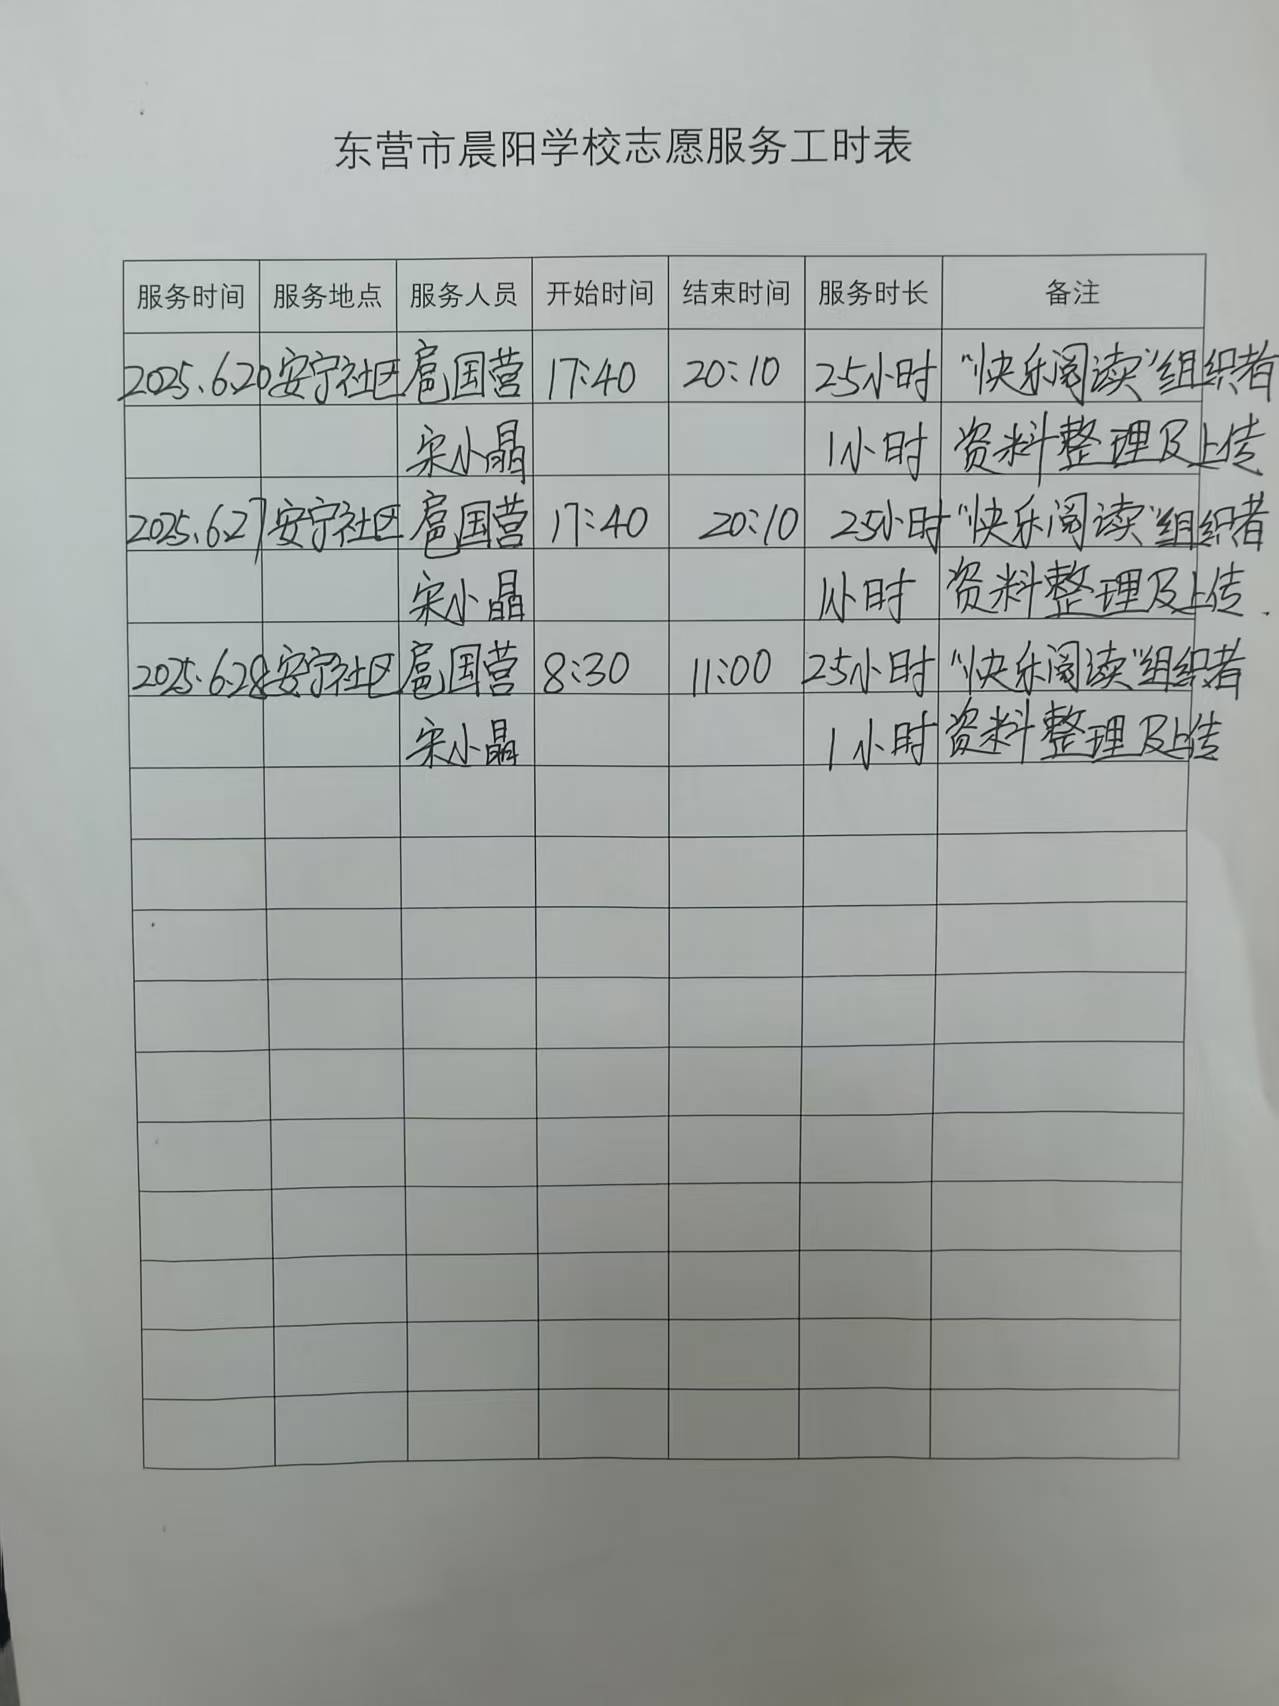 东营市晨阳学校志愿服务工时表
服务时间 服务地点 服务人员 开始时间 结束时间 服务时长 备注
2025.6.20 安宁社区 扈国营 17:40 20:10 2.5小时 "快乐阅读"组织者
宋小晶 1小时 资料整理及上传
2025.6.27 安宁社区 扈国营 17:40 20:10 2.5小时 "快乐阅读"组织者
宋小晶 1小时 资料整理及上传.
2025.6.28 安宁社区 扈国营 8:30 11:00 2.5小时 "快乐阅读"组织者
宋小晶 1小时 资料整理及上传